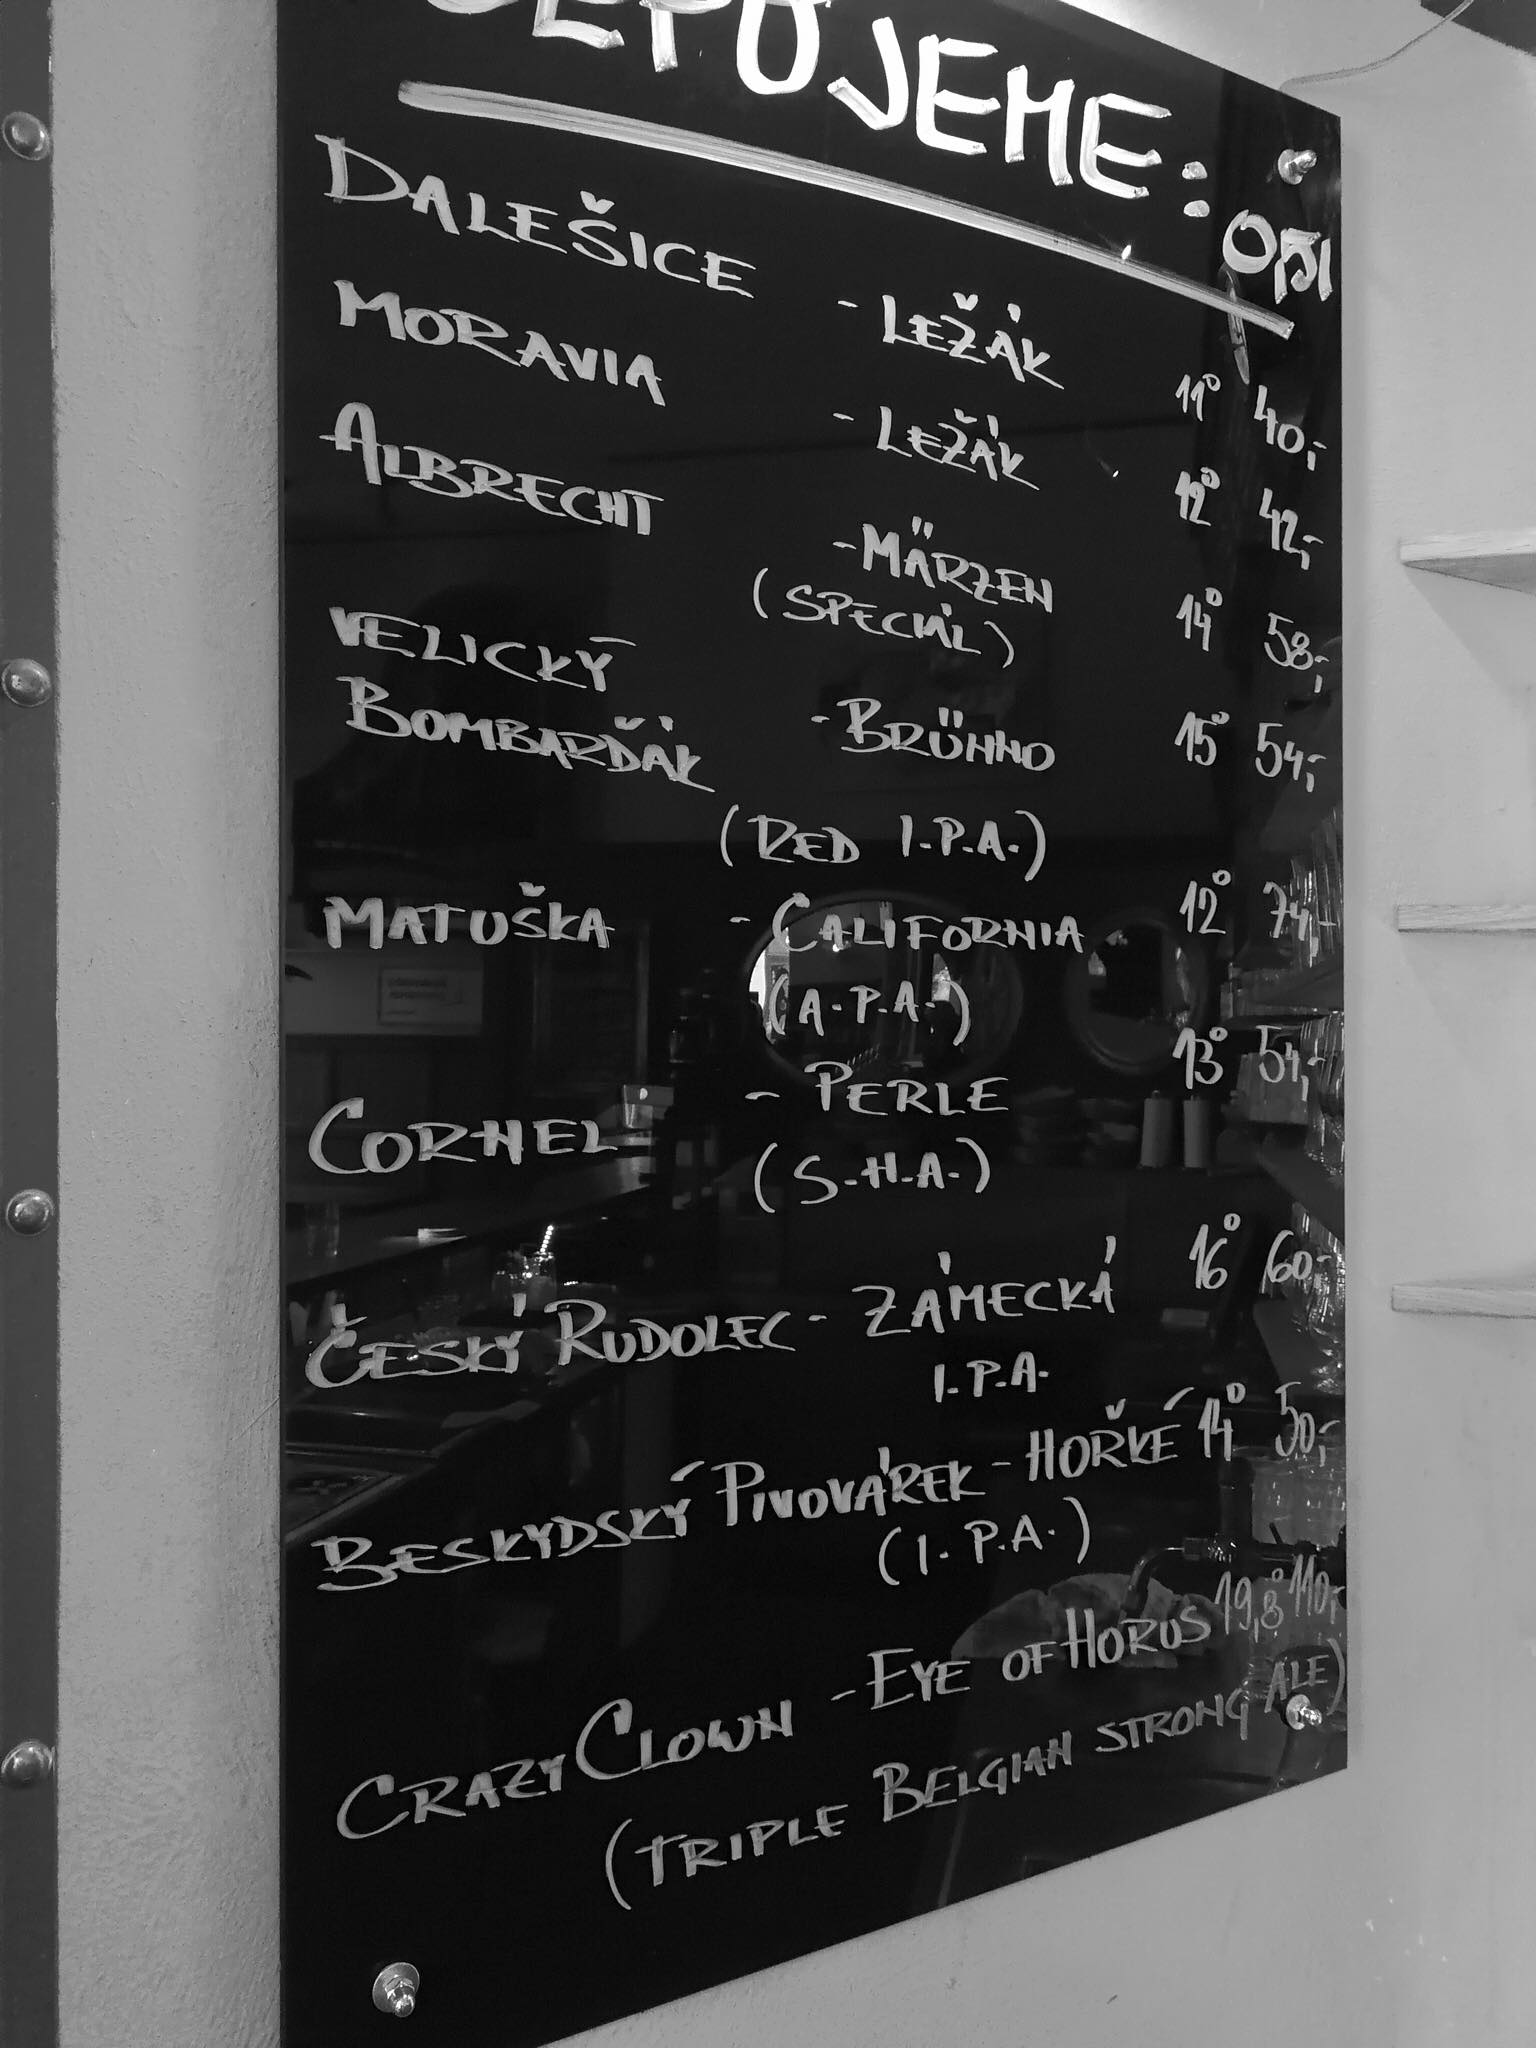 ČEPUJEME:
0,5l
DALEŠICE - LEŽÁK 11° 40,-
MORAVIA - LEŽÁK 12° 42,-
ALBRECHT - MÄRZEN 14° 58,-
(SPECIÁL)
VELICKÝ
BOMBARĎÁK - BRÜNNO 15° 54,-
(RED I.P.A.)
MATUŠKA - CALIFORNIA 12° 74,-
(A.P.A.)
CORNEL - PERLE 13° 54,-
(S.H.A.)
ČESKÝ RUDOLEC - ZÁMECKÁ 16° 60,-
I.P.A.
BESKYDSKÝ PIVOVÁREK - HOŘKÉ 14° 50,-
(I.P.A.)
CRAZY CLOWN - EYE OF HORUS 19,8° 110,-
(TRIPLE BELGIAN STRONG ALE)